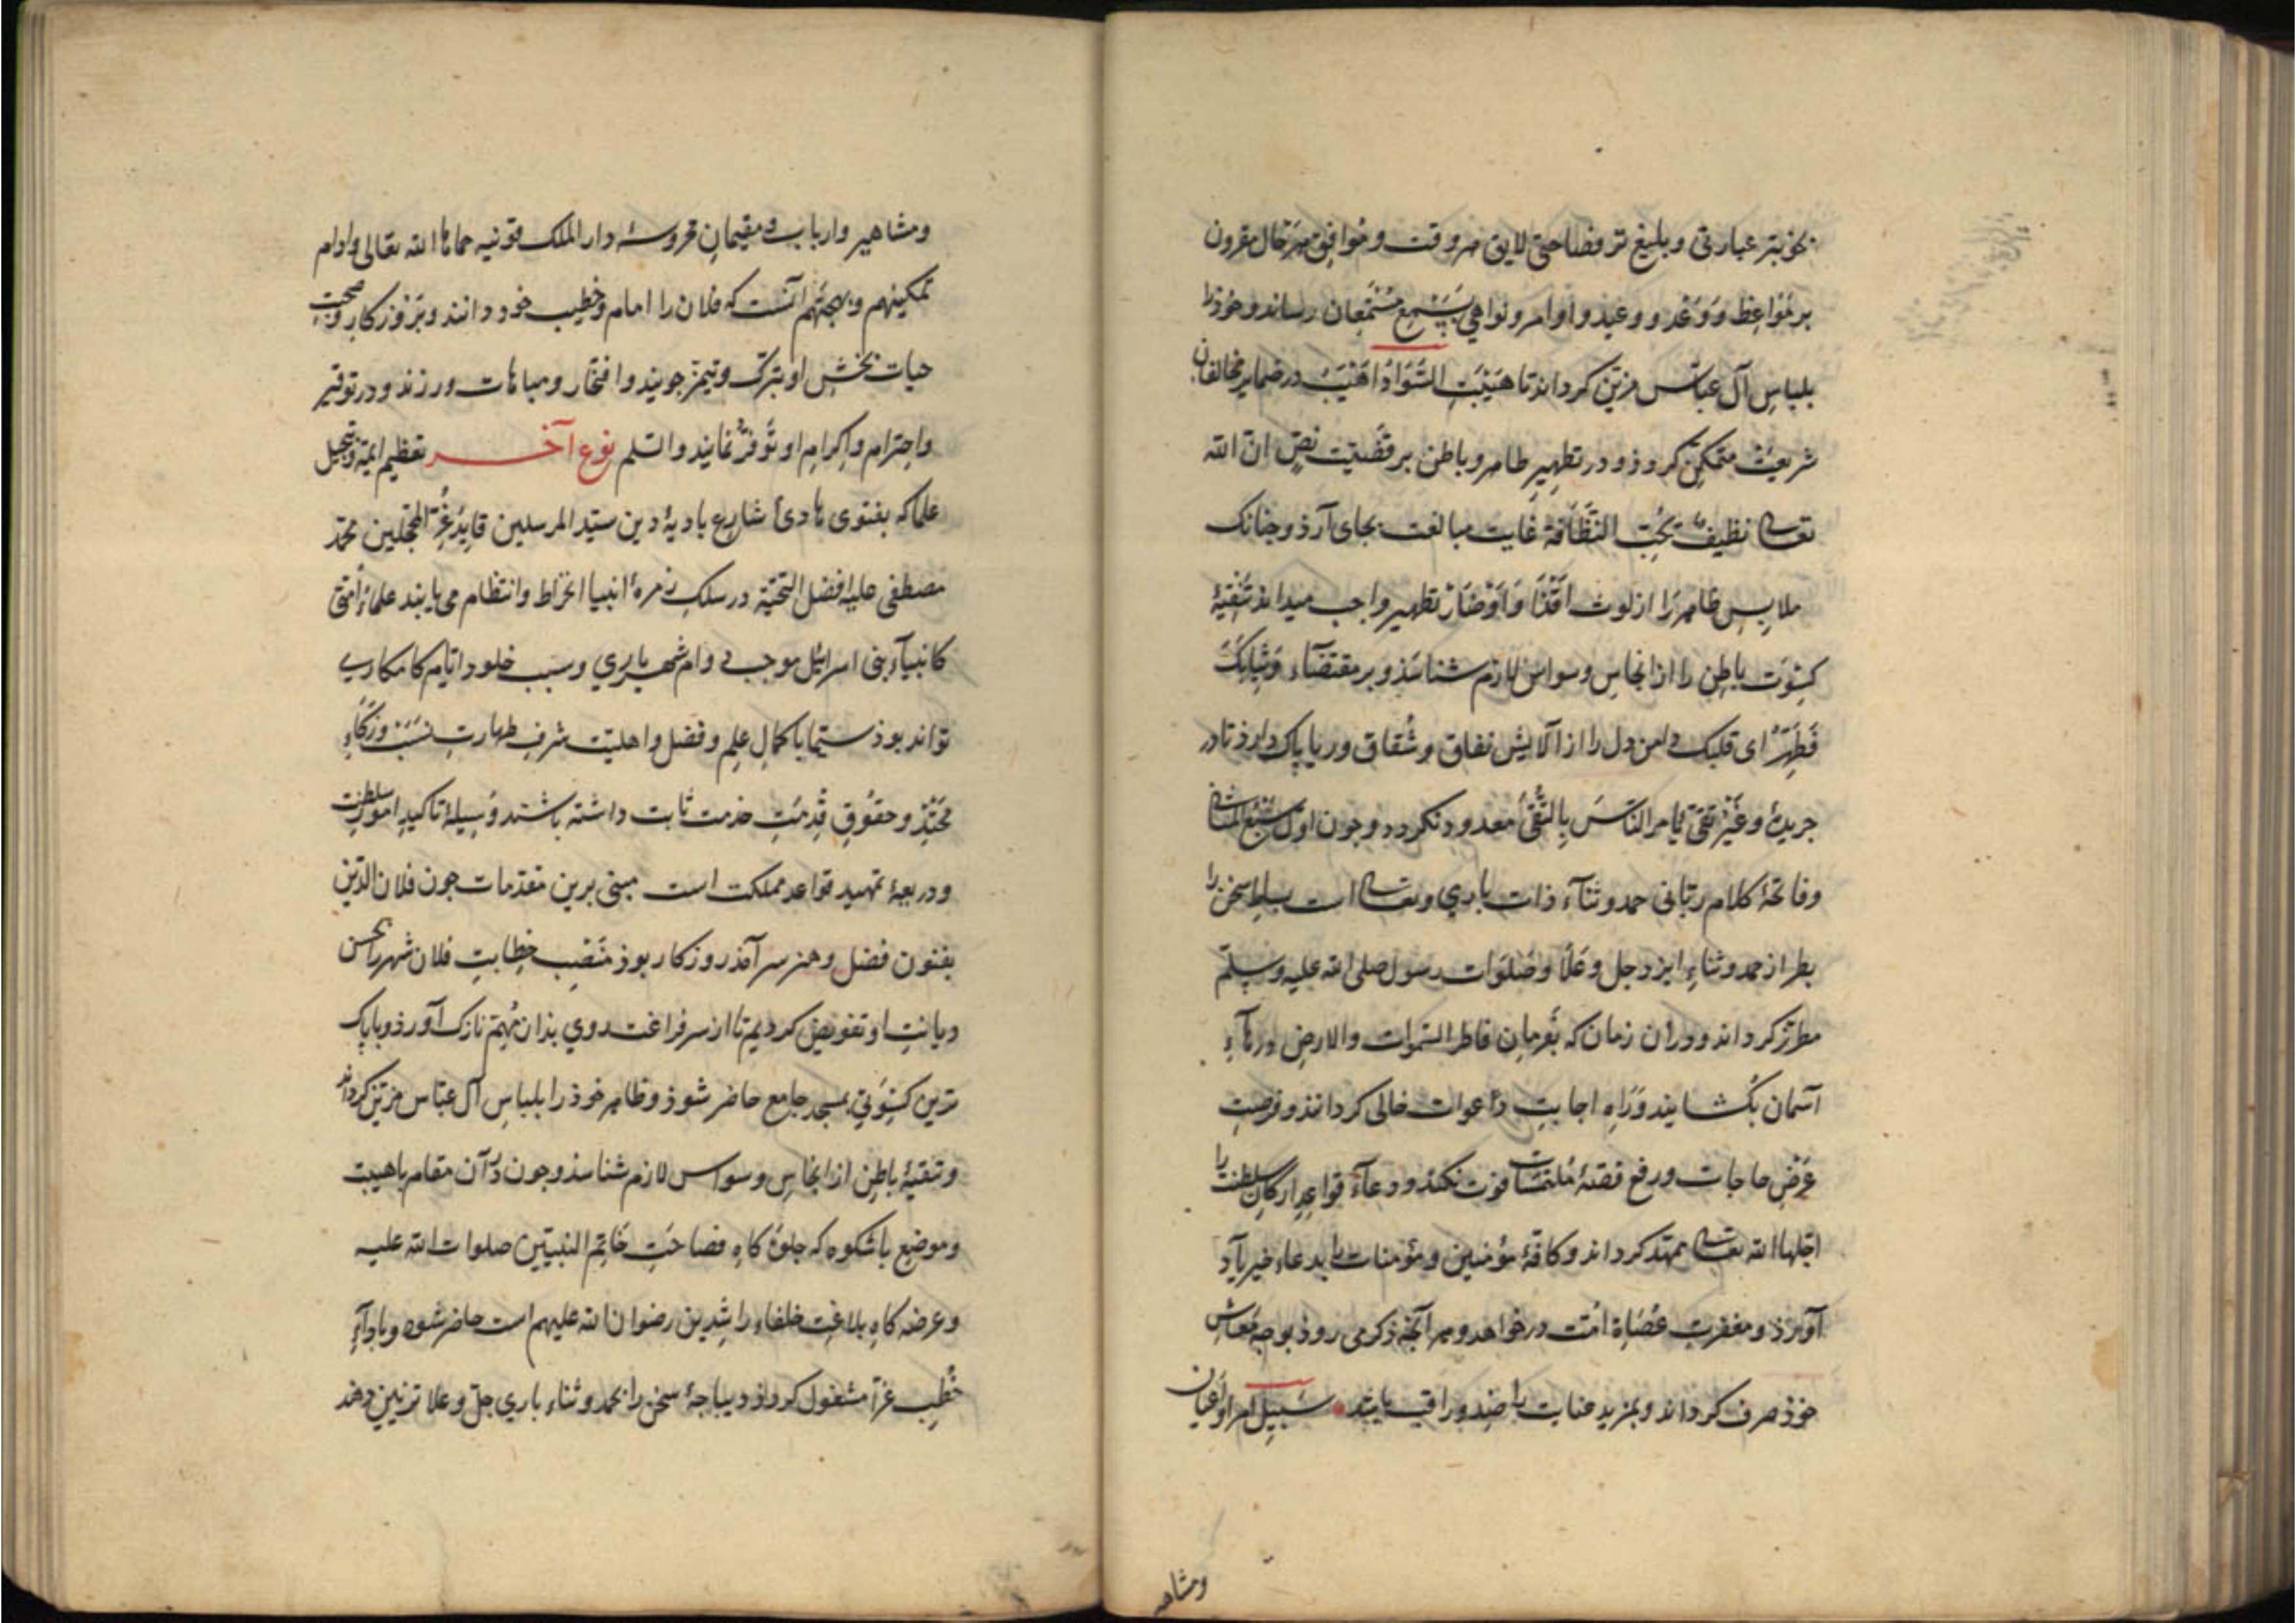 بخوبتر عبارتی و بلیغ تر فصاحتی لایق هر وقت و موافق هر حال مقرون
بر مواعظ و وعد و وعید و اوامر و نواهی بسمع مستمعان رساند و خوذ را
بلباس آل عباس مزین کرداند تا هیبت السواد اهیب در ضمایر مخالفان
شریعت متمکن کردد و در تطهیر ظاهر و باطن بر قضیت نص ان الله
تعالی نظیف یحب النظافة غایت مبالغت بجای آرذ و چنانک
ملابس ظاهر را از لوث اقذار و اوضار تطهیر واجب میداند تنقیهٔ
کسوت باطن را از انجاس وسواس لازم شناسذ و بر مقتضاء وثیابک
فطهر ای قلبک دامن دل را از آلایش نفاق و شقاق و ریا پاک دارذ تا در
جریدهٔ وغیر تقی یامر الناس بالتقی معدود نکردد و جون اول سبع المثانی
وفاتحهٔ کلام ربانی حمد و ثنآء ذات باری وتعالی است بساط سخن را
بطراز حمد وثناء ایزد جل وعلا وصلوات رسول صلی الله علیه وسلم
مطرز کرداند ودران زمان که بفرمان فاطر السموات والارض درهآء
آسمان بکشایند وراه اجابت دعوات خالی کردانند و فرصت
عرض حاجات ورفع قصهٔ ملتمسات فوت نکند ودعآء قواعد ارکان سلطنت را
اجلها الله تعالی ممهد کرداند وکافهٔ مؤمنین ومؤمنات را بدعاء خیر یاد
آورذ ومغفرت عصاة امت درخواهد وهر آنجه ذکر می روذ بوجه معاش
خوذ صرف کرداند وبمزید عنایت راصد وراقب باشد سبیل امرا واعیان
ومشاهیر
ومشاهیر وارباب ومقیمان محروسهٔ دار الملک قونیه حماها الله تعالی وادام
تمکینهم وبهجتهم آنست که فلان را امام وخطیب خود دانند وبر فوز کار وصحبت
حیات بخش او تبرک وتیمن جویند وافتخار ومباهات ورزند ودر توقیر
واحترام واکرام او توفر نمایند والسلم نوع آخر تعظیم ایمه وتبجیل
علما که بفتوی هادی شارع بادیهٔ دین سید المرسلین قاید غر المحجلین محمد
مصطفی علیه افضل التحیة در سلک زمرهٔ انبیا انخراط وانتظام می یابند علماء امتی
کانبیآء بنی اسرائیل موجب دوام شهریاری وسبب خلود ایام کامکاری
تواند بوذ سیما با کمال علم وفضل واهلیت شرف طهارت نسب وزکاء
محتد وحقوق قدمت خدمت ثابت داشته باشند وسیلهٔ تاکید امور سلطنت
وذریعهٔ تمهید قواعد مملکت است مبنی برین مقدمات جون فلان الدین
بفنون فضل وهنر سرآمذ روزکار بوذ منصب خطابت فلان شهر را بحسن
دیانت او تفویض کردیم تا از سر فراغت روی بذان مهم نازک آورذ وبا پاک
ترین کسوتی بمسجد جامع حاضر شوذ وظاهر خوذ را بلباس آل عباس مزین کرداند
وتنقیهٔ باطن از انجاس وسواس لازم شناسذ وجون در آن مقام باهیبت
وموضع باشکوه که جلوه کاه فصاحت خاتم النبیین صلوات الله علیه
وعرضه کاه بلاغت خلفاء راشدین رضوان الله علیهم است حاضر شود وبادآء
خطب غرا مشغول کردد دیباجهٔ سخن را بحمد وثناء باری جل وعلا تزیین دهد